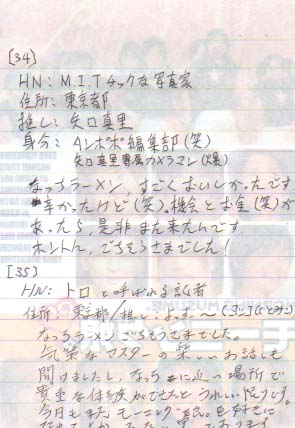 [34]
HN: M.I.Tチックな写真家
住所: 東京都
推し: 矢口真里
身分: ANポポ編集部(笑)
矢口真里専属カメラマン(爆)
なっちラーメン, すごくおいしかったです。
辛かったけど(笑)。機会とお金(笑)が
あったら, 是非また来たいです。
ホントに, ごちそうさまでした!
[35]
HN: トロと呼ばれる記者
住所: 東京都/推し: よすぃ〜
なっちラーメンごちそうさまでした。
気楽なマスターの楽しいお話も
聞けましたし, なっちに近い場所で
貴重な体験ができたとうれしい限りです。
今日もまたモーニング娘。を好きに